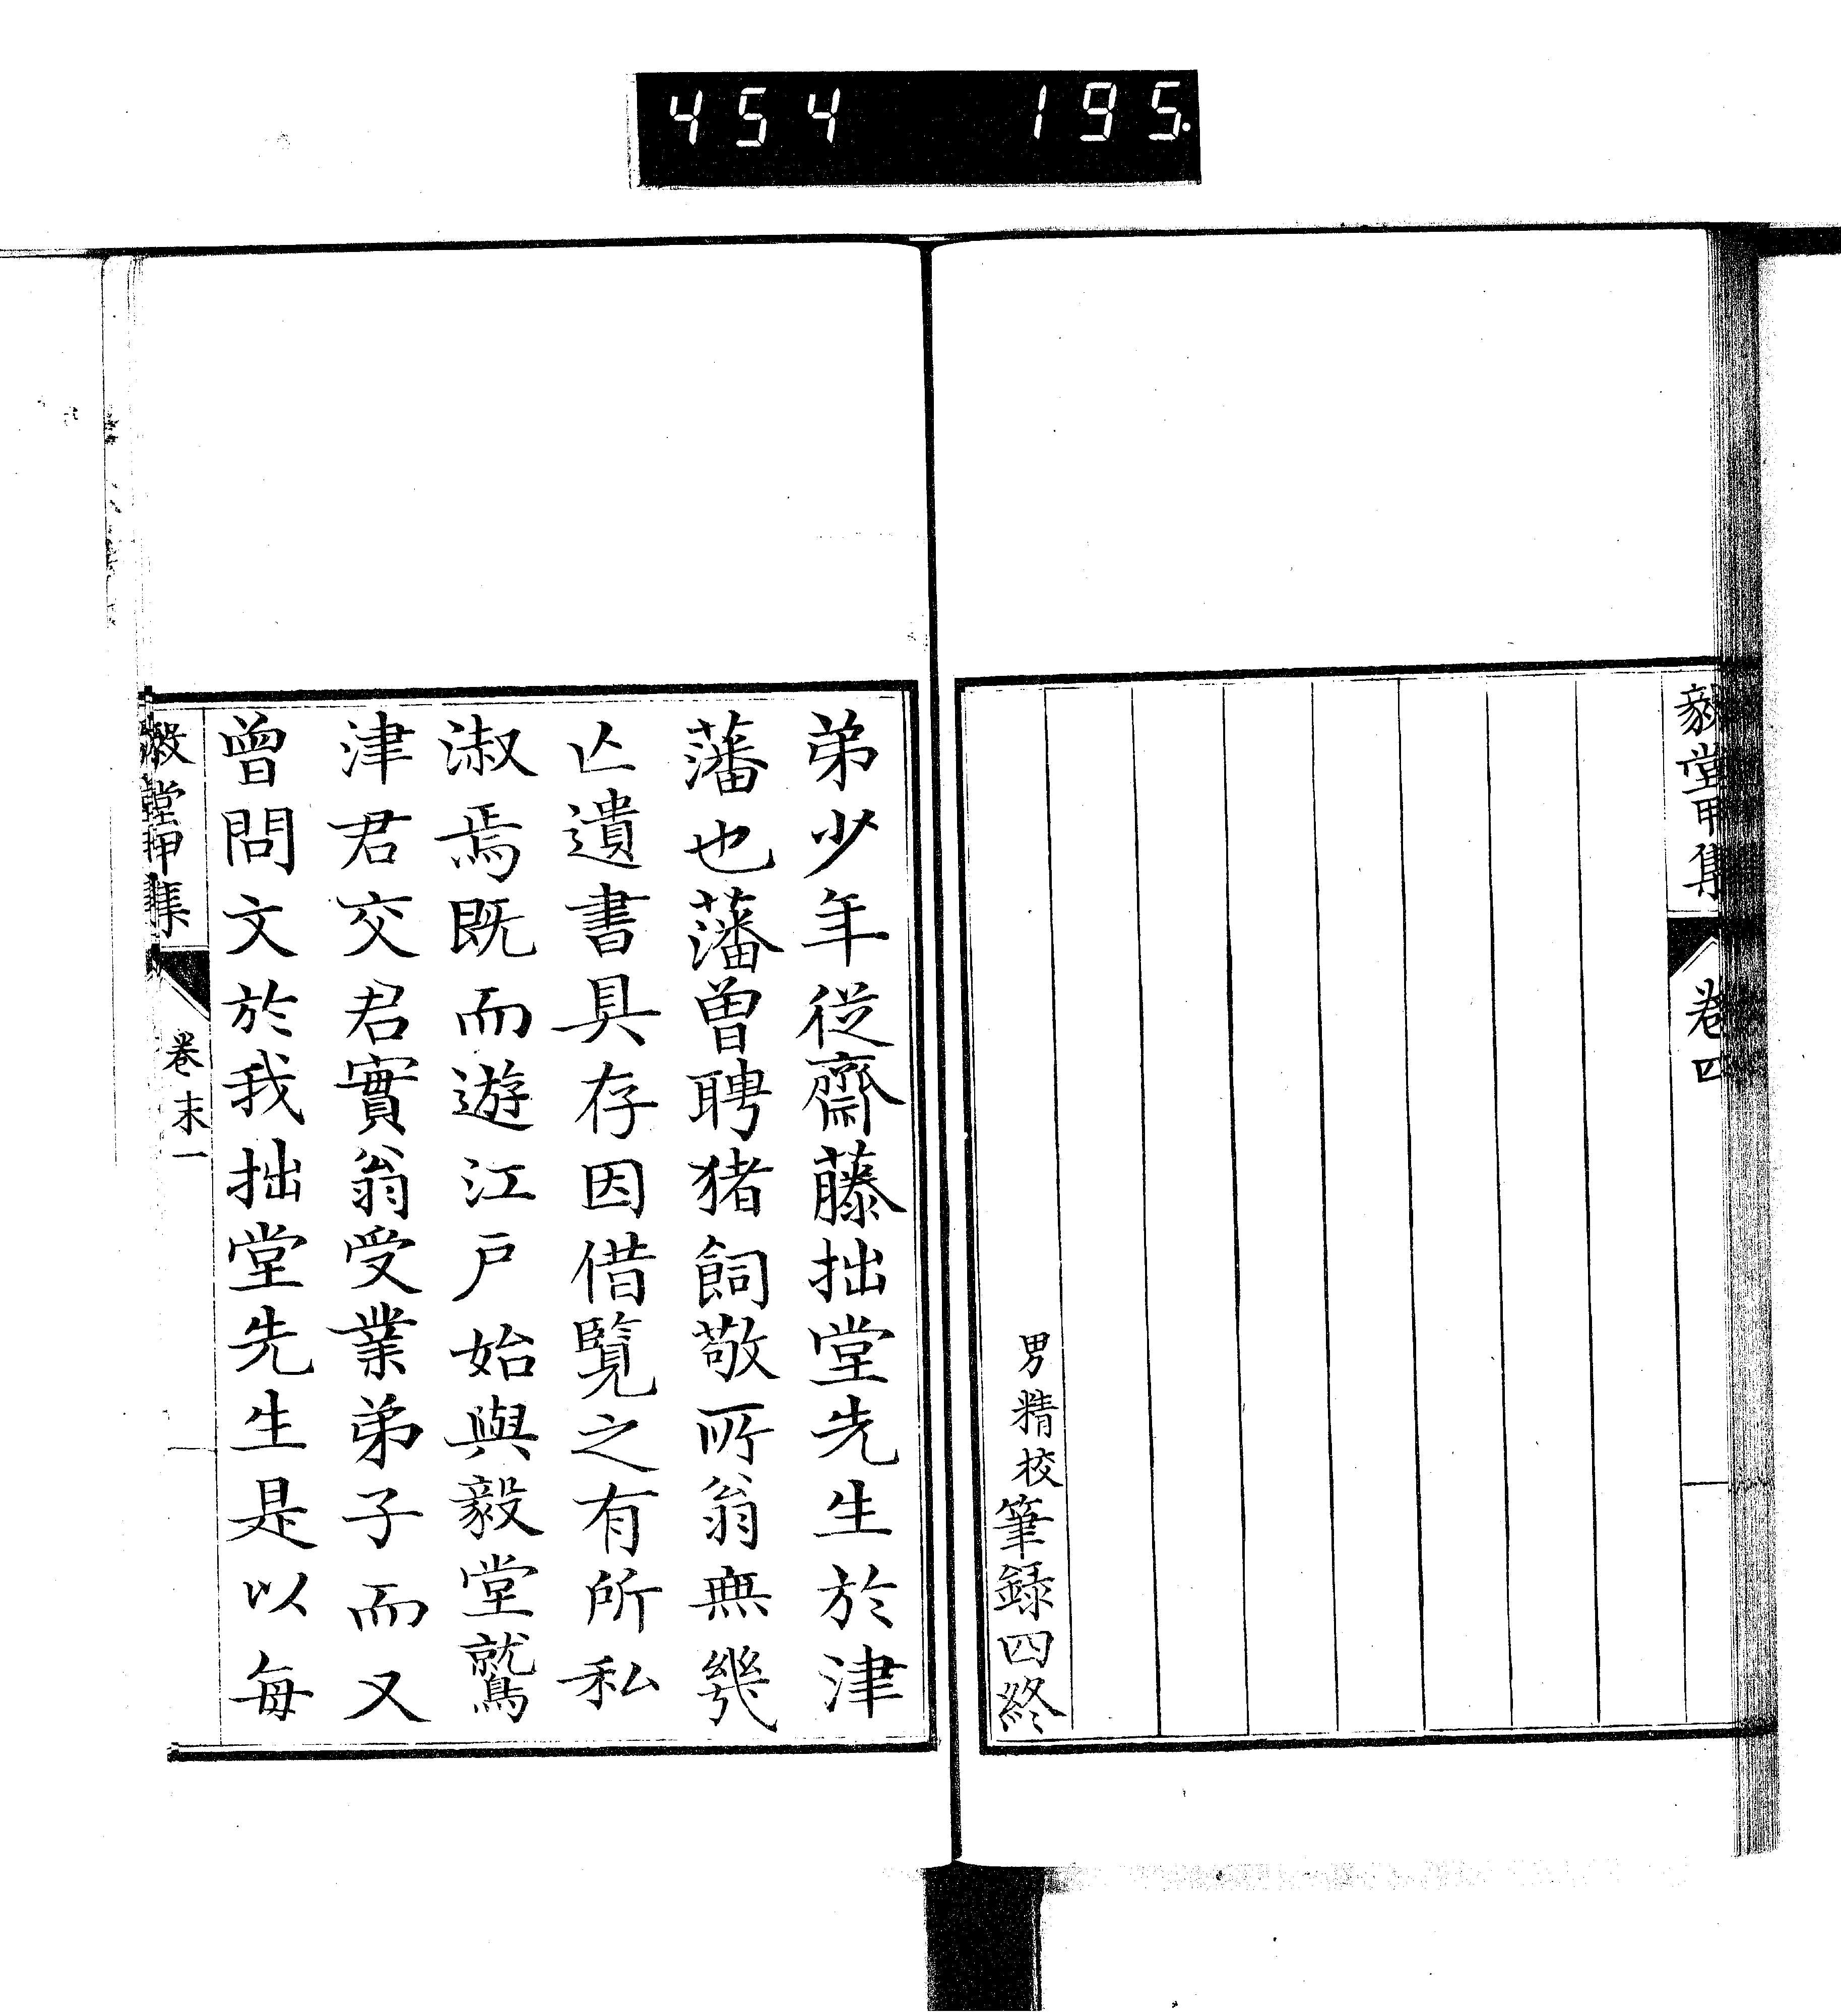 454 195
毅堂甲集 卷四
男精校筆録四終
弟少年従齋藤拙堂先生於津
藩也藩曽聘猪飼敬所翁無幾
亾遺書具存因借覧之有所私
淑焉既而遊江戸始與毅堂鷲
津君交君實翁受業弟子而又
曽問文於我拙堂先生是以毎
毅堂甲集 卷末一